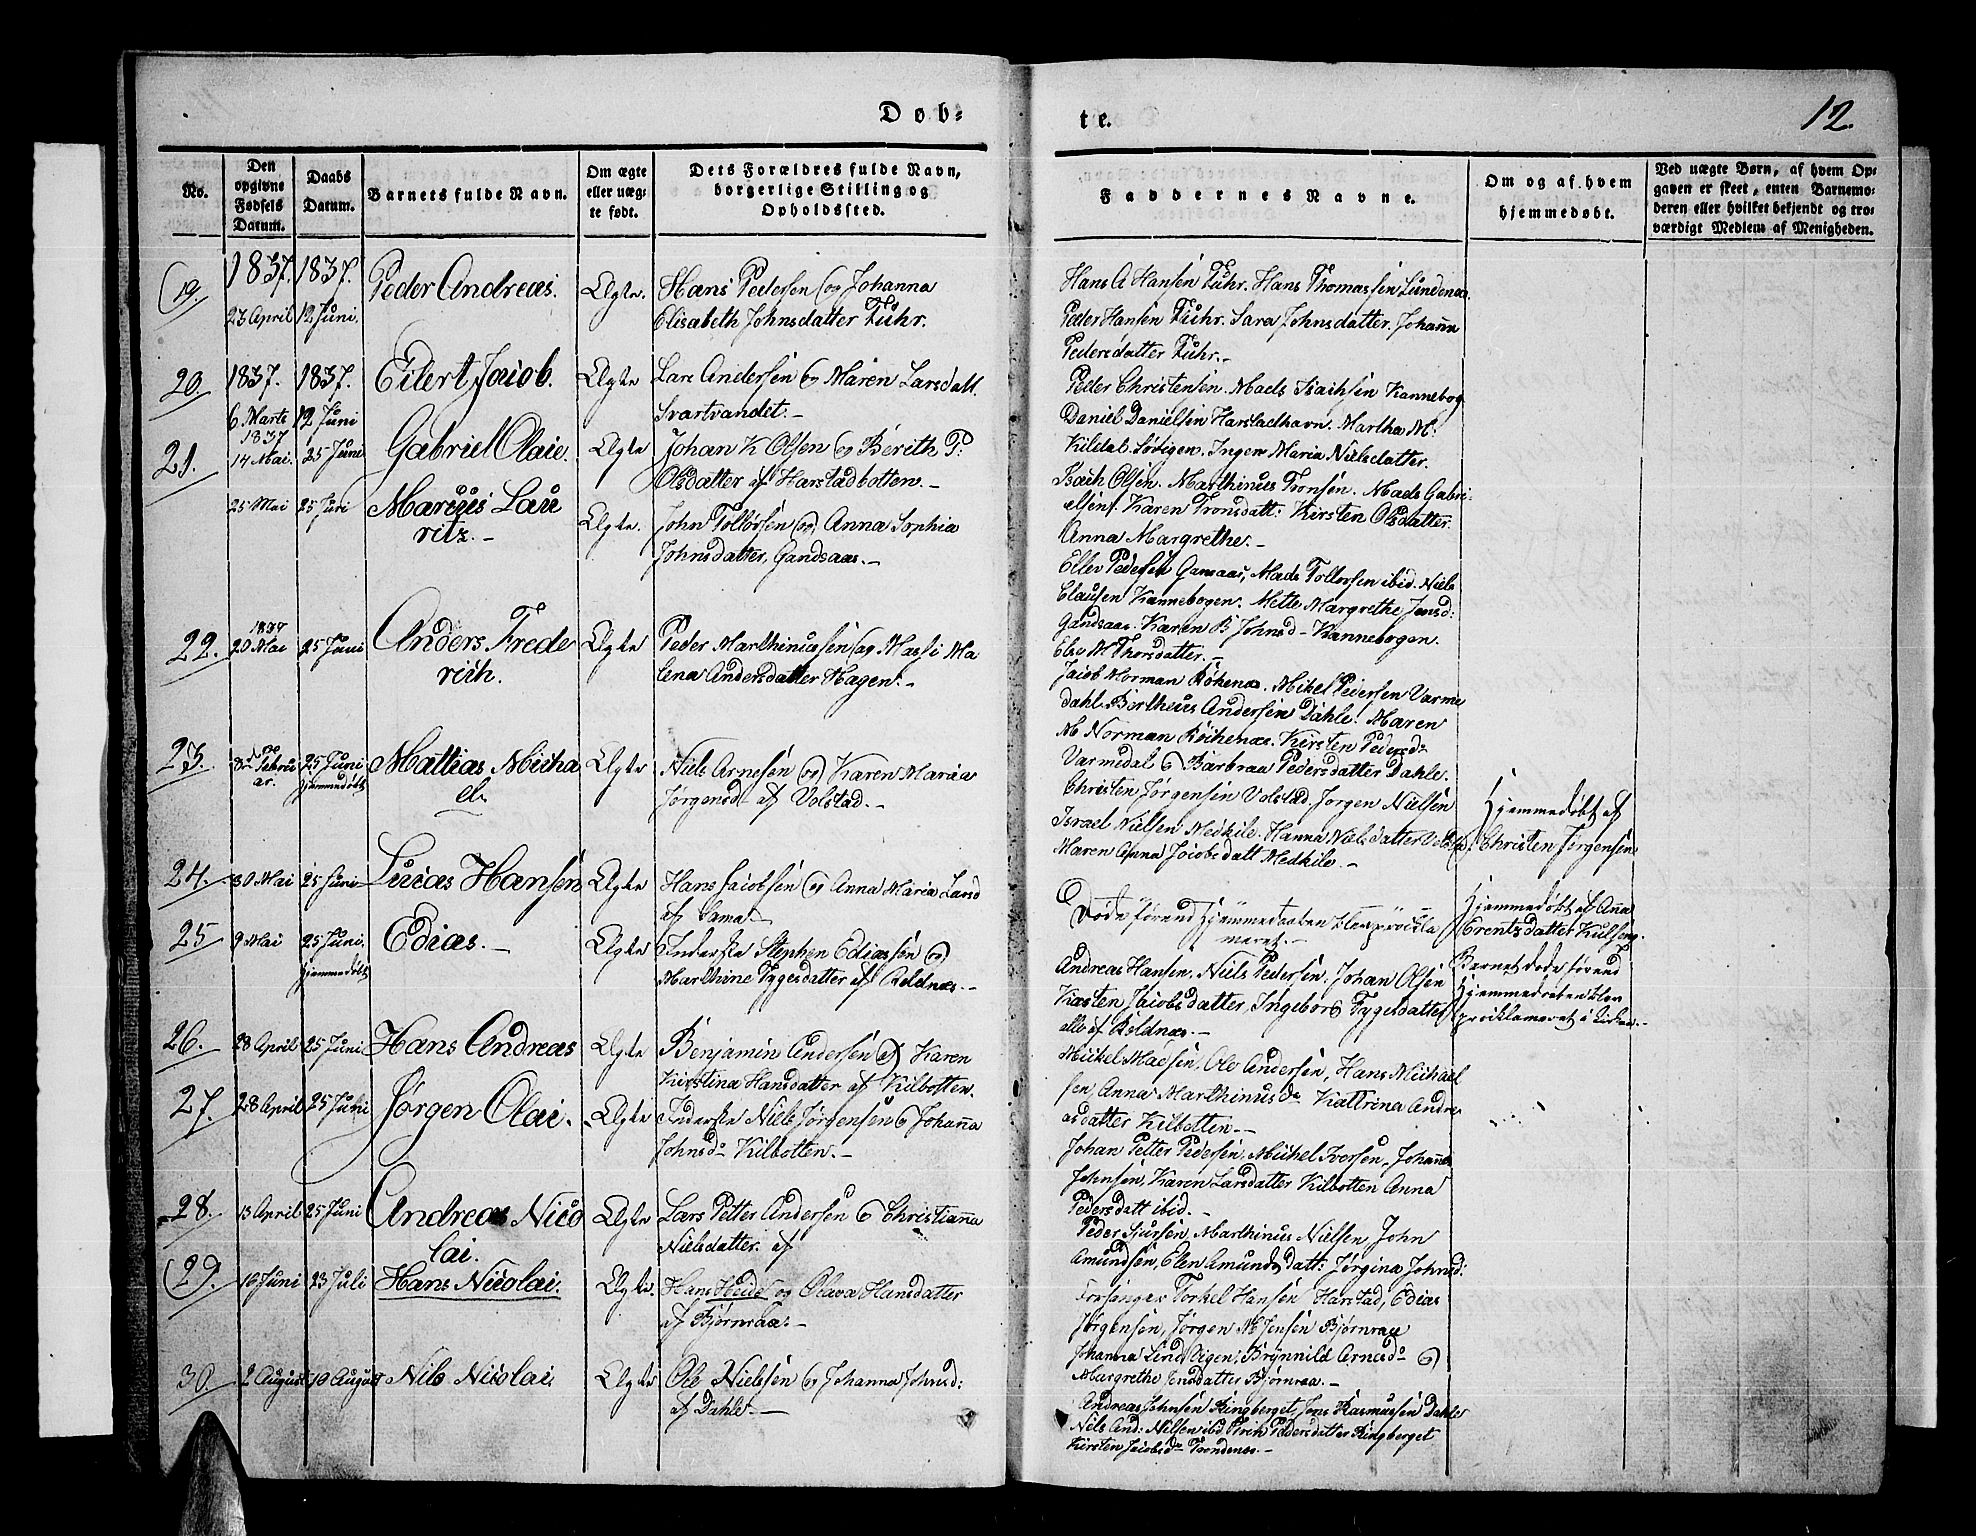 Døb-
te.
12.
No.
Den opgivne Fødsels Datum.
Daabs Datum.
Barnets fulde Navn.
Om ægte eller uægte født.
Dets Forældres fulde Navn, borgerlige Stilling og Opholdssted.
Faddernes Navne.
Om og af hvem hjemmedøbt.
Ved uægte Børn, af hvem Opgaven er skeet, enten Barnemoderen eller hvilket bekjendt og troværdigt Medlem af Menigheden.
19. 1837. 1837. Peder Andreas. Ægte. Hans Pedersen og Johanna
23 April 12 Juni. Elisabeth Johnsdatter Fuhr.
Hans A Hansen Fuhr. Hans Thomassen Lundenes.
Peder Hansen Fuhr. Sara Johnsdatter. Johanna
Pedersdatter Fuhr.-
20. 1837. 1837. Eilert Jacob. Ægte Lars Andersen og Maren Larsdatt.
6 Marts 12 Juni Svartvandet.-
Peder Christensen. Mads Isachsen Kannebog
Daniel Danielsen Harstadhavn. Martha M.
Kildal Sørvigen. Inger Maria Nielsdatter.
21. 1837 14 Mai. 25 Juni Gabriel Olaie. Ægte Johan K Olsen og Berith P:
Olsdatter af Harstadbotten.-
Isach Olsen. Marthinus Tronsen. Mads Gabri-
elsen. Karen Tronsdatt: Kirsten Olsdatter.
Anna Margrethe.-
25 Mai 25 Juni Marius Lau
ritz.- Ægte. John Tollorsen og Anna Sophia
Johnsdatter, Gandsaas.-
Eller Pedersen Gansaas, Mads Tollorsen ibid. Niels
Clausen Kannebogen. Mette Margrethe Jensd:
Gandsaas. Karen B Johnsd- Kannebogen.
Else M Thorsdatter.-
22. 1837 20 Mai 25 Juni Anders Frede
rich. Ægte Peder Marthinussen og Massi Ma
lena Andersdatter Hagen.-
Jacob Norman Røkenæs. Mikel Pedersen Varme
dahl. Bertheus Andersen Dahle. Maren
M Norman Røchenæs. Kirsten Pedersd-
Varmedal og Barbraa Pedersdatter Dahle.
23. Februar. 25 Juni hjemmedøbt Mattias Micha
el. Ægte Niels Arnesen og Karen Maria
Jørgensd- af Volstad.-
Christen Jørgensen Volstad. Jørgen Nielsen
Israel Nielsen Medkile. Hanna Nielsdatter
Maren Anna Jacobsdatt Medkile.-
Hjemmedøbt af
Christen Jørgensen
24. 30 Mai 25 Juni Lucas Hansen Ægte Hans Jacobsen og Anna Maria Larsd
af Sama
Døde førend Hjemmedaaben blev prockla
meret.-
Hjemmedøbt af Anna
25 9 Mai 25 Juni. hjemmedøbt Edias.- Ægte Inderste Stephen Ediassen og
Marthine Tygesdatter af Aldnæs.-
Andreas Hansen. Niels Pedersen. Johan Olsen
Karsten Jacobsdatter, Ingeborg Tygesdatter
alle af Aeldnæs.-
Barnet døde førend
Hjemmedøben blev
procklameret i Kirken.-
26. 28 April 25 Juni Hans Andreas Ægte Benjamin Andersen og Karen
Kirstina Hansdatter af Kilbotten.
Mickel Madsen, Ole Andersen, Hans Michael
sen, Anna Marthinusda Kattrina Andre
asdatter Kilbotten.-
27. 28 April 25 Juni Jørgen Olai. Ægte Inderste Niels Jørgensen og Johanna
Johnsd- Kilbotten.-
Johan Petter Pedersen. Mickel Iversen, Johannes
Johnsen, Karen Larsdatter Kilbotten Anna
Pedersdatt ibid.-
28. 13 April 25 Juni Andreas Nico
lai. Ægte Lars Petter Andersen og Christianna
Nielsdatter. af
Peder Sjursen, Marthinus Nielsen, John
Amundsen, Elen Amundsdatt: Jørgina Johnsd:
29. 10 Juni 23 Juli Hans Nicolai. Ægte. Hans Heide og Olava Hansdatter
af Bjørnraa.-
Torkel Hansen Harstad, Edias
Jørgensen, Jørgen M Jensen Bjørnraa
Johanna Lind Vigen, Brynnild Arnesd- og
Margrethe Jensdatter Bjørnraa.-
30. 2 August 10 August Nils Nicolai. Ægte Ole Nielsen og Johanna Johnsd:
af Dahle.-
Andreas Johnsen Ringberget, Jens Rasmussen Dahle
Nils And: Nilsen ibid Birith Pedersdatter Ringberget
Kirsten Jacobsd- Trondenæs.-